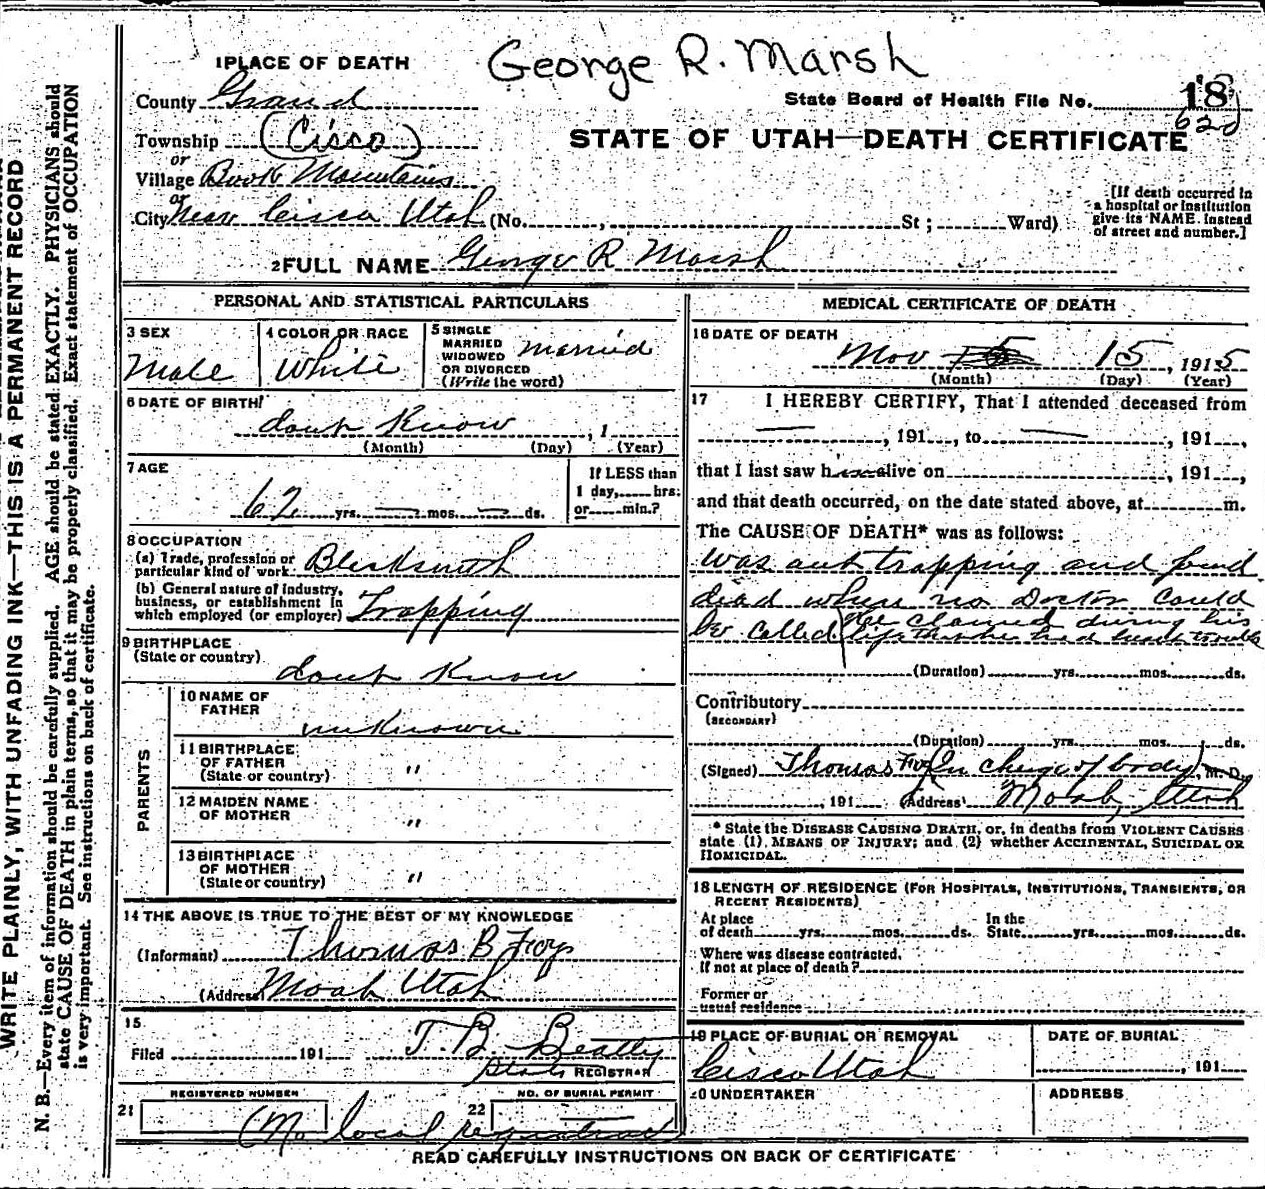 George R. Marsh
1 PLACE OF DEATH
County Grand
State Board of Health File No. 18
620
Township (Cisco)
STATE OF UTAH—DEATH CERTIFICATE
or
Village Book Mountains
or
City Near Cisco Utah (No. , St ; Ward)
[If death occurred in
a hospital or institution
give its NAME instead
of street and number.]
2 FULL NAME George R Marsh
PERSONAL AND STATISTICAL PARTICULARS
3 SEX
Male
4 COLOR OR RACE
White
5 SINGLE
MARRIED
WIDOWED
OR DIVORCED
(Write the word)
Married
6 DATE OF BIRTH
dont Know , 1
(Month) (Day) (Year)
7 AGE
62 yrs. — mos. — ds.
If LESS than
1 day, hrs.
or min.?
8 OCCUPATION
(a) Trade, profession or
particular kind of work. Blacksmith
(b) General nature of industry,
business, or establishment in
which employed (or employer) Trapping
9 BIRTHPLACE
(State or country)
dont Know
PARENTS
10 NAME OF
FATHER
unknown
11 BIRTHPLACE
OF FATHER
(State or country) "
12 MAIDEN NAME
OF MOTHER "
13 BIRTHPLACE
OF MOTHER
(State or country) "
14 THE ABOVE IS TRUE TO THE BEST OF MY KNOWLEDGE
(Informant) Thomas B Foy
(Address) Moab Utah
15
Filed 191 T. B. Beatty
State REGISTRAR
REGISTERED NUMBER
21
NO. OF BURIAL PERMIT
22
(No local registrar)
MEDICAL CERTIFICATE OF DEATH
16 DATE OF DEATH
Nov 15 15, 1915
(Month) (Day) (Year)
17 I HEREBY CERTIFY, That I attended deceased from
— , 191 , to — , 191 ,
that I last saw h alive on , 191 ,
and that death occurred, on the date stated above, at m.
The CAUSE OF DEATH* was as follows:
Was out trapping and found
dead where no Doctor could
be called (He claimed during his
life that he had heart trouble
(Duration) yrs. mos. ds.
Contributory
(SECONDARY)
(Duration) yrs. mos. ds.
(Signed) Thomas Foy (In charge of body), M. D.
, 191 (Address) Moab, Utah
* State the DISEASE CAUSING DEATH, or, in deaths from VIOLENT CAUSES
state (1) MEANS OF INJURY; and (2) whether ACCIDENTAL, SUICIDAL OR
HOMICIDAL.
18 LENGTH OF RESIDENCE (FOR HOSPITALS, INSTITUTIONS, TRANSIENTS, OR
RECENT RESIDENTS)
At place
of death yrs. mos. ds.
In the
State yrs. mos. ds.
Where was disease contracted,
if not at place of death?
Former or
usual residence
19 PLACE OF BURIAL OR REMOVAL
Cisco Utah
DATE OF BURIAL
, 191
20 UNDERTAKER
ADDRESS
READ CAREFULLY INSTRUCTIONS ON BACK OF CERTIFICATE
WRITE PLAINLY, WITH UNFADING INK—THIS IS A PERMANENT RECORD
N. B.—Every item of information should be carefully supplied. AGE should be stated EXACTLY. PHYSICIANS should
state CAUSE OF DEATH in plain terms, so that it may be properly classified. Exact statement of OCCUPATION
is very important. See instructions on back of certificate.